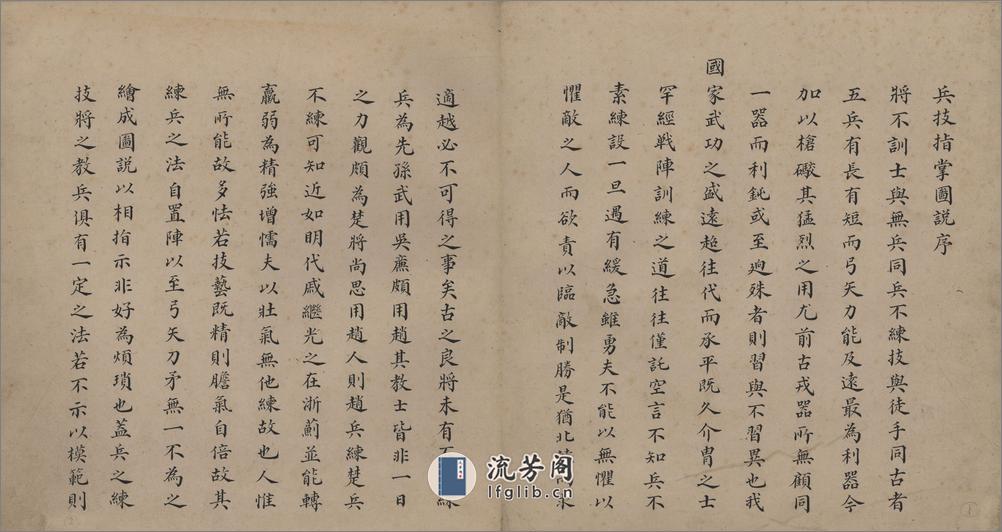 兵技指掌圖說序
將不訓士與無兵同兵不練技與徒手同古者
五兵有長有短而弓矢力能及遠最為利器今
加以槍礮其猛烈之用尤前古戎器所無顧同
一器而利鈍或至逈殊者則習與不習異也我
國家武功之盛遠超往代而承平既久介胄之士
罕經戰陣訓練之道往往僅託空言不知兵不
素練設一旦遇有緩急雖勇夫不能以無懼以
懼敵之人而欲責以臨敵制勝是猶北
適越必不可得之事矣古之良將未有
兵為先孫武用吳廉頗用趙其教士皆非一日
之力觀頗為楚將尚思用趙人則趙兵練楚兵
不練可知近如明代戚繼光之在浙薊並能轉
羸弱為精強增懦夫以壯氣無他練故也人惟
無所能故多怯若技藝既精則膽氣自倍故其
練兵之法自置陣以至弓矢刀矛無一不為之
繪成圖說以相指示非好為煩瑣也蓋兵之練
技將之教兵俱有一定之法若不示以模範則
流芳阁
lfglib.cn